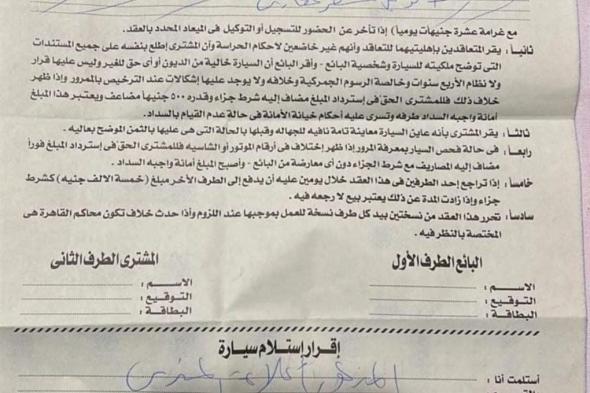 مع غرامة عشرة جنيهات يومياً) إذا تأخر عن الحضور للتسجيل أو التوكيل فى الميعاد المحدد بالعقد.
ثانيـاً : يقر المتعاقدين بإهليتهما للتعاقد وأنهم غير خاضعين لاحكام الحراسة وأن المشترى إطلع بنفسه على جميع المستندات
التى توضح ملكيته للسيارة وشخصية البائع - وأقر البائع أن السيارة خالية من الديون أو أى حق للغير وليس عليها قرار
ولا نظام الأربع سنوات وخالصة الرسوم الجمركية وخلافه ولا يوجد عليها إشكالات عند الترخيص بالمرور وإذا ظهر
خلاف ذلك فللمشترى الحق فى إسترداد المبلغ مضاف إليه شرط جزاء وقدره ٥٠٠ جنيهاً مضاعف ويعتبر هذا المبلغ
أمانة واجبه السداد طرفه وتسرى عليه أحكام خيانة الأمانة فى حالة عدم القيام بالسداد.
ثالثـاً : يقر المشترى بأنه عاين السيارة معاينة تامة نافيه للجهاله وقبلها بالحالة التى هى عليها بالثمن الموضح بعاليه .
رابعـاً : فى حالة فحص السيار بمعرفة المرور إذا ظهر إختلاف فى أرقام الموتور أو الشاسيه فللمشترى الحق فى إسترداد المبلغ فوراً
مضاف إليه المصاريف مع شرط الجزاء دون أى معارضة من البائع - وأصبح المبلغ أمانة واجبه السداد .
خامساً : إذا تراجع إحد الطرفين فى هذا العقد خلال يومين عليه أن يدفع إلى الطرف الأخر مبلغ (خمسة الالف جنيه) كشرط
جزاء وإذا زادت المدة عن ذلك يعتبر بيع لا رجعه فيه .
سادساً : تحرر هذا العقد من نسختين بيد كل طرف نسخة للعمل بموجبها عند اللزوم وأذا حدث خلاف تكون محاكم القاهرة هى
المختصة بالنظر فيه .
البائع الطرف الأول
المشترى الطرف الثانى
الاســم :
الاســم :
التوقيع :
التوقيع :
البطاقة :
البطاقة :
إقرار إستلام سيارة
أستلمت أنا :